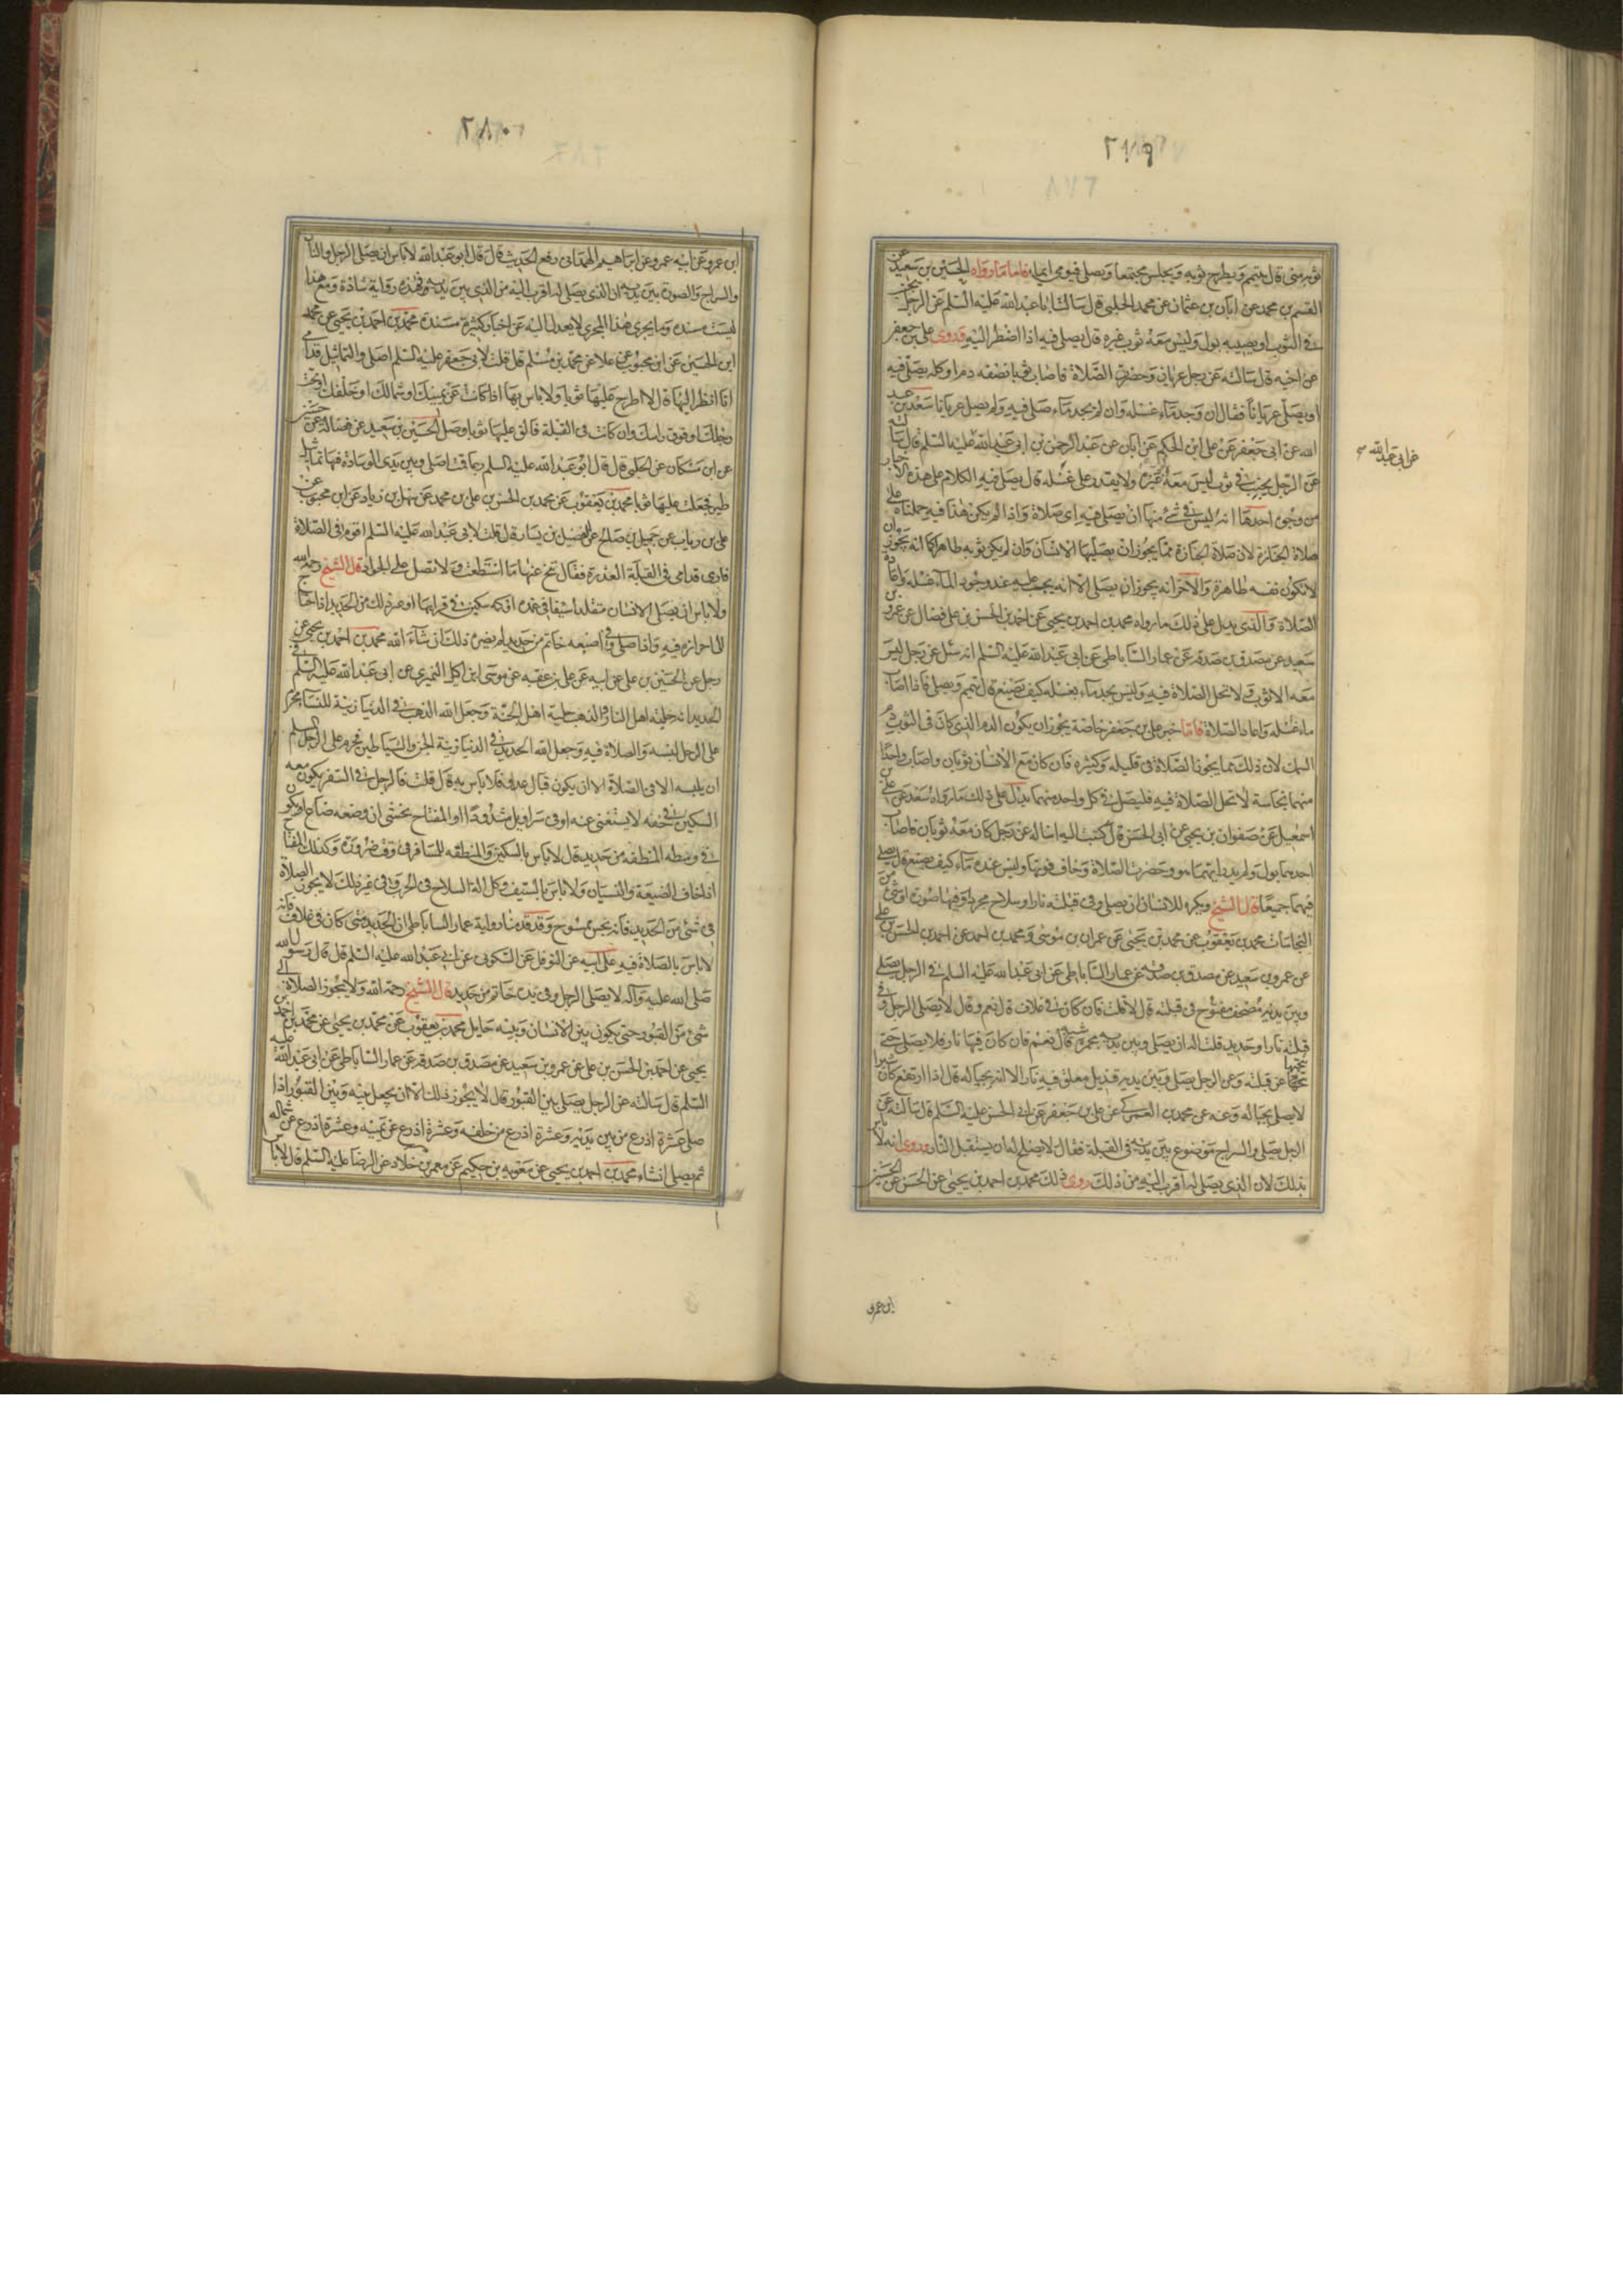 ثوبه منى قال يتيمم ويطرح ثوبه ويجلس مجتمعا ويصلى فيومى ايماء فاما ما رواه الحسين بن سعيد عن
القسم بن محمد عن ابان بن عثمان عن محمد الحلبى قال سالت ابا عبد الله عليه السلم عن الرجل يجنب
فى الثوب او يصيبه بول وليس معه ثوب غيره قال يصلى فيه اذا اضطر اليه فروى على بن جعفر
عن اخيه قال سالته عن رجل عريان وحضرت الصلاة فاصاب ثوبا نصفه دم او كله يصلى فيه
او يصلى عريانا فقال ان وجد ماء غسله وان لم يجد ماء صلى فيه ولم يصل عريانا سعد بن عبد
الله عن ابى جعفر عن على بن الحكم عن ابان عن عبد الرحمن بن ابى عبد الله عليه السلم قال سالته
عن ابى عبد الله
عن الرجل يجنب فى ثوب ليس معه غيره ولا يقدر على غسله قال يصلى فيه الكلام على هذه الاخبار
من وجوه احدها انه ليس فى شئ منها ان يصلى فيه اى صلاة واذا لم يكن هذا فيه حملناه على
صلاة الجنازة لان صلاة الجنازة مما يجوز ان يصليها الانسان وان لم يكن ثوبه طاهرا كما انه يجوز ان
لا تكون نفسه طاهرة والاخر انه يجوز ان يصلى الا انه يجب عليه عند وجود الماء غسله واعادة
الصلاة والذى يدل على ذلك ما رواه محمد بن احمد بن يحيى عن احمد بن الحسن بن على فضال عن عمرو بن
سعيد عن مصدق بن صدقه عن عمار الساباطى عن ابى عبد الله عليه السلم انه سئل عن رجل ليس
معه الا ثوب ولا تحل الصلاة فيه وليس يجد ماء يغسله كيف يصنع قال يتيمم ويصلى فاذا اصاب
ماء غسله واعاد الصلاة فاما خبر على بن جعفر خاصة يجوز ان يكون الدم الذى كان فى الثوب دم
السمك لان ذلك مما يجوز الصلاة فى قليله وكثيره فان كان مع الانسان ثوبان واصاب واحدا
منهما نجاسة لا تحل الصلاة فيه فليصل فى كل واحد منهما يدل على ذلك ما رواه سعد عن على بن
اسمعيل عن صفوان بن يحيى عن ابى الحسن قال كتبت اليه اساله عن رجل كان معه ثوبان فاصاب
احدهما بول ولم يدر ايهما هو وحضرت الصلاة وخاف فوتها وليس عنده ماء كيف يصنع قال يصلى
فيهما جميعا قال الشيخ ويكره للانسان ان يصلى وفى قبلته نار او سلاح مجرد او فيها صورة او شئ من
النجاسات محمد بن يعقوب عن محمد بن يحيى عن عمران بن موسى ومحمد بن احمد عن احمد بن الحسن بن على
عن عمرو بن سعيد عن مصدق بن صدقه عن عمار الساباطى عن ابى عبد الله عليه السلم فى الرجل يصلى
وبين يديه مصحف مفتوح فى قبلته قال لا قلت فان كان فى غلاف قال نعم وقال لا يصلى الرجل وفى
قبلته نار او حديد قلت اله ان يصلى وبين يديه مجمرة شبه قال نعم فان كان فيها نار فلا يصلى حتى
ينحيها عن قبلته وعن الرجل يصلى وبين يديه قنديل معلق فيه نار الا انه بحياله قال اذا ارتفع كان شرا
لا يصلى بحياله وعنه عن محمد بن العمركى عن على بن جعفر عن ابى الحسن عليه السلم قال سالته عن
الرجل يصلى والسراج موضوع بين يديه فى القبلة فقال لا يصلح له ان يستقبل النار وروى انه لا باس
بذلك لان الذى يصلى له اقرب اليه من ذلك روى ذلك محمد بن احمد بن يحيى عن الحسن عن الحسين
ابن عمرو
ابن عمرو عن ابيه عمرو عن ابراهيم الهمدانى رفع الحديث قال قال ابو عبد الله لا باس ان يصلى الرجل والنار
والسراج والصورة بين يديه ان الذى يصلى له اقرب اليه من الذى بين يديه وهذه رواية شاذة ومع هذا
ليست مسنده وما يجرى هذا المجرى لا يعدل اليه عن اخبار كثيرة مسندة محمد بن احمد بن يحيى عن محمد
ابن الحسين عن ابن محبوب عن علا عن محمد بن مسلم قال قلت لابى جعفر عليه السلم اصلى والتماثيل قدامى
انا انظر اليها قال لا اطرح عليها ثوبا ولا باس بها اذا كانت عن يمينك او شمالك او خلفك او تحت
رجلك او فوق راسك وان كانت فى القبلة فالق عليها ثوبا وصل الحسين بن سعيد عن فضالة عن حسين
عن ابن مسكان عن الحلبى قال قال ابو عبد الله عليه السلم ربما قمت اصلى وبين يدى الوسادة فيها تماثيل
طير فجعلت عليها ثوبا محمد بن يعقوب عن محمد بن الحسن بن على بن محمد عن سهل بن زياد عن ابن محبوب عن
على بن رياب عن جميل بن صالح عن الفضيل بن يسار قال قلت لابى عبد الله عليه السلم اقوم فى الصلاة
فارى قدامى فى القبلة العذرة فقال تنح عنها ما استطعت ولا تصل على الجواد قال الشيخ رحمه الله
ولا باس ان يصلى الانسان متقلدا سيفا فى غمده او كمه سكين فى قرابها او غير ذلك من الحديد اذا احتاج
الى احرازه فيه واذا صلى وفى اصبعه خاتم من حديد لم يضره ذلك ان شاء الله محمد بن احمد بن يحيى عن
رجل عن الحسين بن على عن ابيه عن على بن عقبه عن موسى ابن اكيل النميرى عن ابى عبد الله عليه السلم فى
الحديد انه حلية اهل النار والذهب حلية اهل الجنة وجعل الله الذهب فى الدنيا زينة للنساء فحرم
على الرجل لبسه والصلاة فيه وجعل الله الحديد فى الدنيا زينة الجن والشياطين فحرم على الرجل المسلم
ان يلبسه الا فى الصلاة الا ان يكون قبال عدو فلا باس به قال قلت فالرجل فى السفر يكون معه
السكين فى خفه لا يستغنى عنه او فى سراويل مشدودا او المفتاح يخشى ان وضعه ضاع او يكون
فى وسطه المنطقه من حديد قال لا باس بالسكين والمنطقه للمسافر فى وقت ضرورة وكذلك المفتاح
اذا خاف الضيعة والنسيان ولا باس بالسيف وكل الة السلاح فى الحرب وفى غير ذلك لا يجوز الصلاة
فى شئ من الحديد فانه نجس ممسوخ وقد قدمنا رواية عمار الساباطى ان الحديد متى كان فى غلاف فانه
لا باس بالصلاة فيه على ابيه عن النوفلى عن السكونى عن ابى عبد الله عليه السلم قال قال رسول الله
صلى الله عليه واله لا يصلى الرجل وفى يده خاتم من حديد قال الشيخ رحمه الله ولا يجوز الصلاة الى
شئ من القبور حتى يكون بين الانسان وبينه حايل محمد بن يعقوب عن محمد بن يحيى عن محمد بن احمد بن
يحيى عن احمد بن الحسن بن على عن عمرو بن سعيد عن مصدق بن صدقه عن عمار الساباطى عن ابى عبد الله عليه
السلم قال سالته عن الرجل يصلى بين القبور قال لا يجوز ذلك الا ان يجعل بينه وبين القبور اذا
صلى عشرة اذرع من بين يديه وعشرة اذرع من خلفه وعشرة اذرع عن يمينه وعشرة اذرع عن شماله
ثم يصلى ان شاء محمد بن احمد بن يحيى عن معويه بن حكيم عن معمر بن خلاد عن الرضا عليه السلم قال لا باس